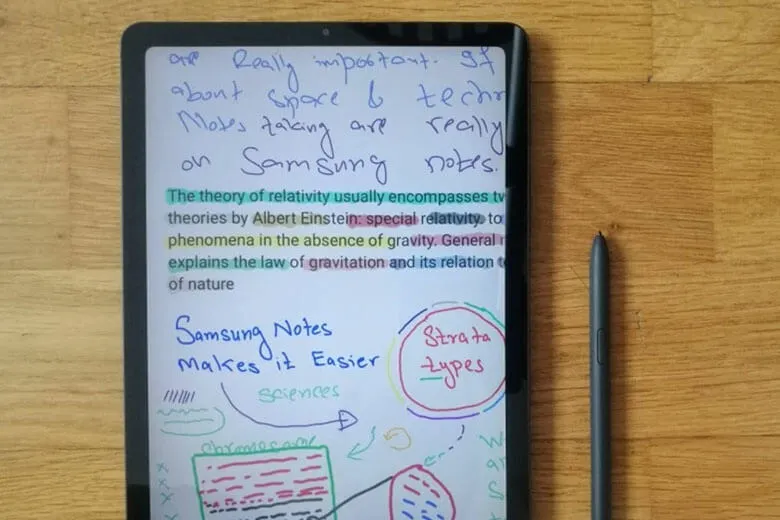 are Really important. If
about space & techn
Notes taking are really
on Samsung notes.
The theory of relativity usually encompasses tw
theories by Albert Einstein: special relativity. to
phenomena in the absence of gravity. General r
explains the law of gravitation and its relation to
of nature
Samsung Notes
makes it Easier
Strata
types
sciences
chromosome
W
an
S